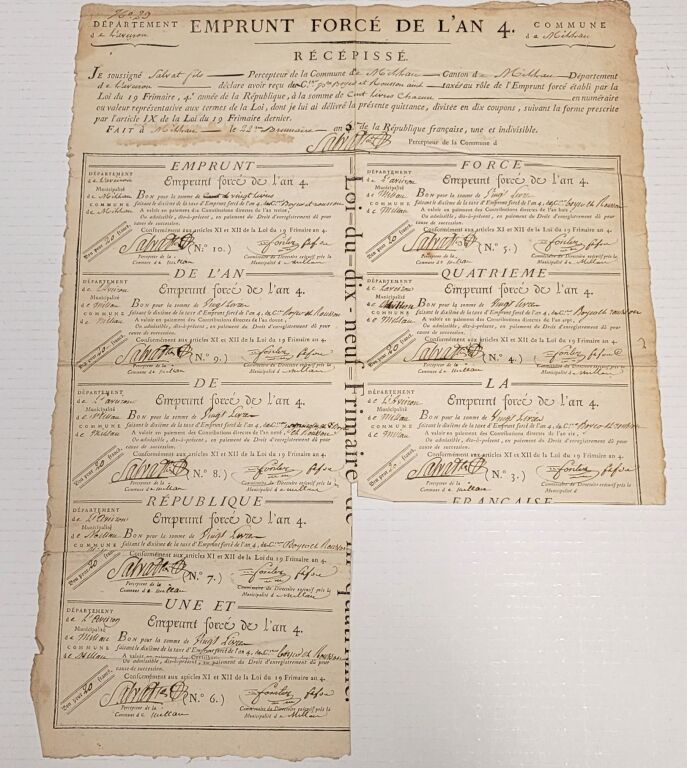 No. 29
DÉPARTEMENT
de l'aveiron
EMPRUNT FORCÉ DE L'AN 4.
COMMUNE
de Milhau
RÉCÉPISSÉ.
JE soussigné Salvat fils Percepteur de la Commune de Milhau Canton de Milhau Département
de l'aveiron déclare avoir reçu du C.en taxé au rôle de l'Emprunt forcé établi par la
Loi du 19 Frimaire, 4.e année de la République, à la somme de Cent livres Chacun en numéraire
ou valeur représentative aux termes de la Loi, dont je lui ai délivré la présente quittance, divisée en dix coupons, suivant la forme prescrite
par l'article IX de la Loi du 19 Frimaire dernier.
FAIT à Milhau le Brumaire an de la République française, une et indivisible.
Salvat Percepteur de la Commune d
Loi-du-dix-neuf-Frimaire
EMPRUNT
DÉPARTEMENT
de l'aveiron
Municipalité
de Milhau
COMMUNE
de Milhau
Bon pour 20 francs.
Emprunt forcé de l'an 4.
BON pour la somme de vingt livres
faisant le dixième de la taxe d'Emprunt forcé de l'an 4, du C.en
A valoir en paiement des Contributions directes de l'an treize,
Ou admissible, dès-à-présent, en paiement du Droit d'enregistrement dû pour
cause de succession.
Conformément aux articles XI et XII de la Loi du 19 Frimaire an 4.
Salvat (N.° 10.)
Percepteur de la
Commune de Millau
Commissaire du Directoire exécutif près la
Municipalité de Millau
DE L'AN
DÉPARTEMENT
de l'Aveiron
Municipalité
de Millau
COMMUNE
de Millau
Bon pour 20 francs.
Emprunt forcé de l'an 4.
BON pour la somme de Vingt Livres
faisant le dixième de la taxe d'Emprunt forcé de l'an 4, du C.en
A valoir en paiement des Contributions directes de l'an douze,
Ou admissible, dès-à-présent, en paiement du Droit d'enregistrement dû pour
cause de succession.
Conformément aux articles XI et XII de la Loi du 19 Frimaire an 4.
Salvat (N.° 9.)
Percepteur de la
Commune de Millau
Commissaire du Directoire exécutif près la
Municipalité de Millau
DE
DÉPARTEMENT
de l'aveiron
Municipalité
de Millau
COMMUNE
de Milhau
Bon pour 20 francs.
Emprunt forcé de l'an 4.
BON pour la somme de Vingt Livres
faisant le dixième de la taxe d'Emprunt forcé de l'an 4, du C.en
A valoir en paiement des Contributions directes de l'an onze,
Ou admissible, dès-à-présent, en paiement du Droit d'enregistrement dû pour
cause de succession.
Conformément aux articles XI et XII de la Loi du 19 Frimaire an 4.
Salvat (N.° 8.)
Percepteur de la
Commune de Millau
Commissaire du Directoire exécutif près la
Municipalité de Millau
RÉPUBLIQUE
DÉPARTEMENT
de l'Aveiron
Municipalité
de Millau
COMMUNE
Bon pour 20 francs.
Emprunt forcé de l'an 4.
BON pour la somme de Vingt Livres
faisant le dixième de la taxe d'Emprunt forcé de l'an 4, du C.en
Conformément aux articles XI et XII de la Loi du 19 Frimaire an 4.
Salvat (N.° 7.)
Percepteur de la
Commune de Millau
Commissaire du Directoire exécutif près la
Municipalité de Millau
UNE ET
DÉPARTEMENT
de l'Aveiron
Municipalité
de Millau
COMMUNE
de Millau
Bon pour 20 francs.
Emprunt forcé de l'an 4.
BON pour la somme de Vingt Livres
faisant le dixième de la taxe d'Emprunt forcé de l'an 4, du C.en
A valoir en paiement des Contributions
Ou admissible, dès-à-présent, en paiement du Droit d'enregistrement dû pour
cause de succession.
Conformément aux articles XI et XII de la Loi du 19 Frimaire an 4.
Salvat (N.° 6.)
Percepteur de la
Commune de Millau
Commissaire du Directoire exécutif près la
Municipalité de Millau
FORCÉ
DÉPARTEMENT
de l'aveiron
Municipalité
de Millau
COMMUNE
de Millau
Bon pour 20 francs.
Emprunt forcé de l'an 4.
BON pour la somme de Vingt Livres
faisant le dixième de la taxe d'Emprunt forcé de l'an 4, du C.en
A valoir en paiement des Contributions directes de l'an huit,
Ou admissible, dès-à-présent, en paiement du Droit d'enregistrement dû pour
cause de succession.
Conformément aux articles XI et XII de la Loi du 19 Frimaire an 4.
Salvat (N.° 5.)
Percepteur de la
Commune de Millau
Commissaire du Directoire exécutif près la
Municipalité de Millau
QUATRIEME
DÉPARTEMENT
de l'aveiron
Municipalité
de Millau
COMMUNE
de Millau
Bon pour 20 francs.
Emprunt forcé de l'an 4.
BON pour la somme de Vingt Livres
faisant le dixième de la taxe d'Emprunt forcé de l'an 4, du C.en
A valoir en paiement des Contributions directes de l'an sept,
Ou admissible, dès-à-présent, en paiement du Droit d'enregistrement dû pour
cause de succession.
Conformément aux articles XI et XII de la Loi du 19 Frimaire an 4.
Salvat (N.° 4.)
Percepteur de la
Commune de Millau
Commissaire du Directoire exécutif près la
Municipalité de Millau
LA
DÉPARTEMENT
de l'Aveiron
Municipalité
de Millau
COMMUNE
de Millau
Bon pour 20 francs.
Emprunt forcé de l'an 4.
BON pour la somme de Vingt Livres
faisant le dixième de la taxe d'Emprunt forcé de l'an 4, du C.en
A valoir en paiement des Contributions directes de l'an six,
Ou admissible, dès-à-présent, en paiement du Droit d'enregistrement dû pour
cause de succession.
Conformément aux articles XI et XII de la Loi du 19 Frimaire an 4.
Salvat (N.° 3.)
Percepteur de la
Commune de Millau
Commissaire du Directoire exécutif près la
Municipalité d
FRANÇAISE